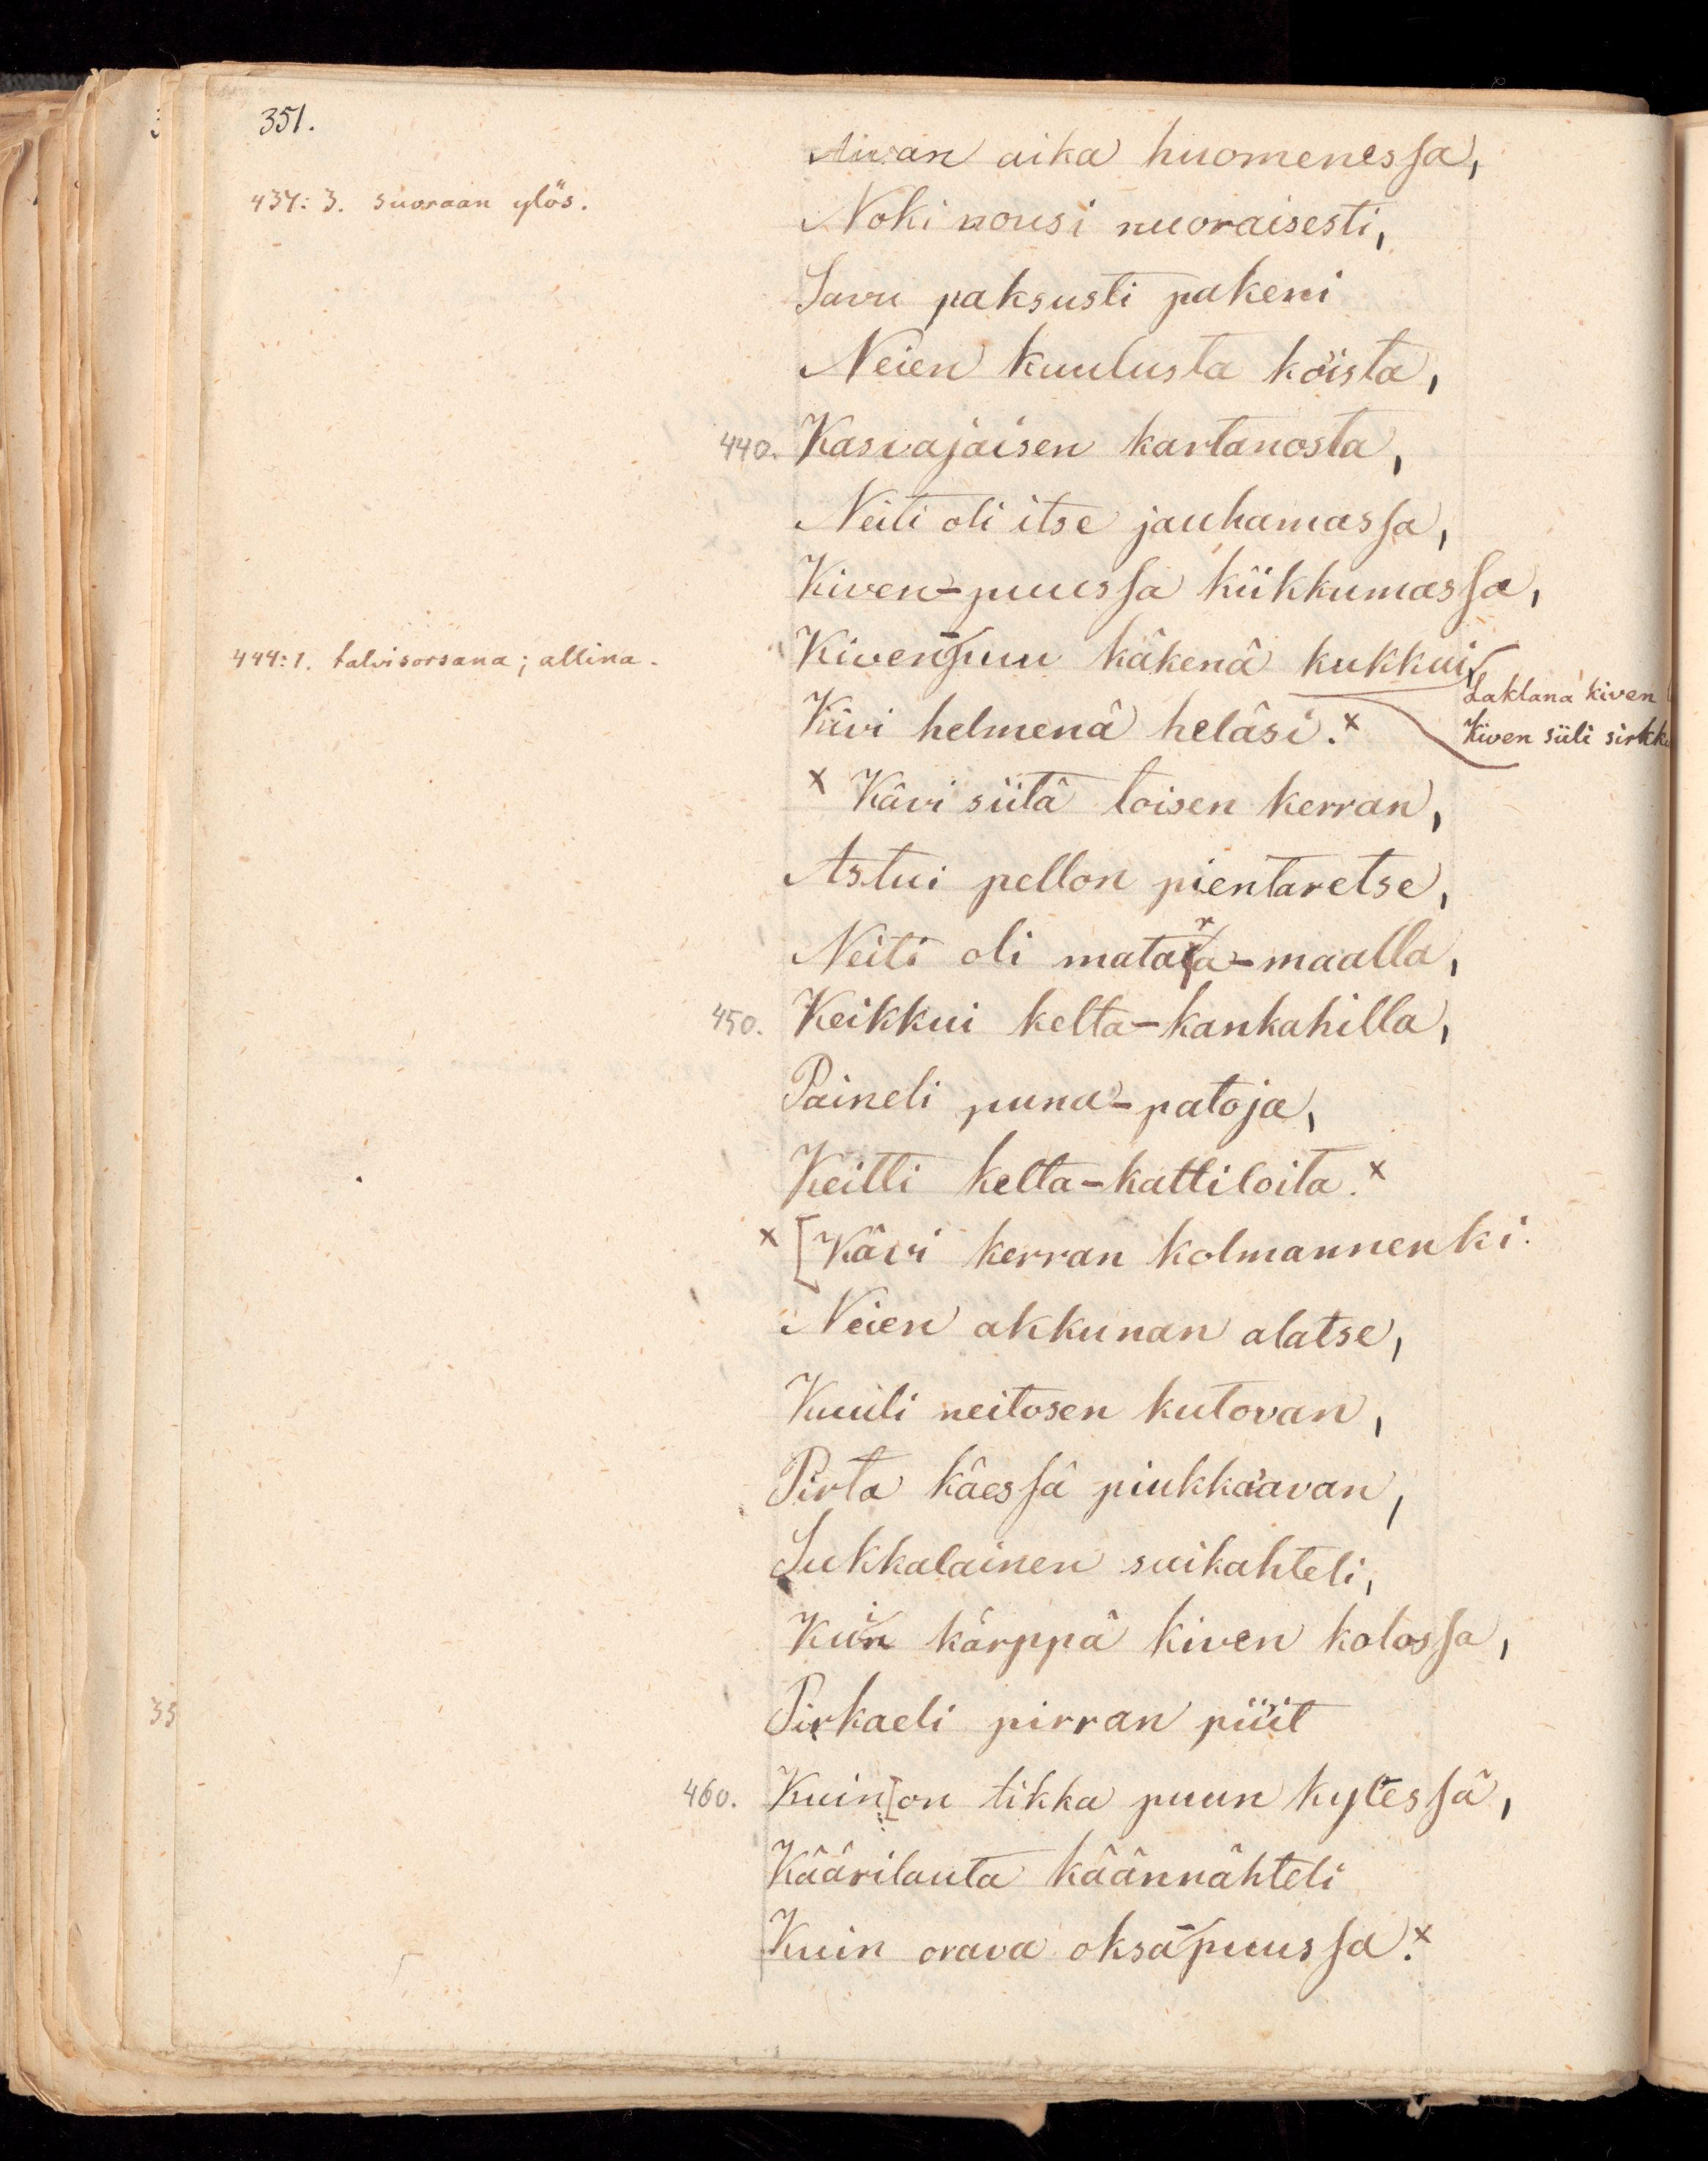 351.
Aivan aika huomenessa,
437: 3. suoraan ylös.
Noki nousi nuoraisesti,
Savu paksusti pakeni
Neien kuulusta koista,
440. Kasvajaisen kartanosta,
Neiti oli itse jauhamassa,
Kiven-puussa kiikkumassa,
444: 1. talvisorsana; allina.
Kiven-puu käkenä kukkui,
Laklana kiven
Kiven siili sirkk
Kivi helmenä heläsi.x
x Kävi siitä toisen kerran,
Astui pellon pientaretse,
Neiti oli matara-maalla,
450. Keikkui kelta-kankahilla,
Paineli puna-patoja,
Keitti kelta-kattiloita.x
x [Kävi kerran kolmannenki.
Neien akkunan alatse,
Kuuli neitosen kutovan,
Pirta käessä piukkaavan,
Sukkalainen suikahteli,
Kuin kärppä kiven kolossa,
Pirkaeli pirran piiit
460. Kuin[on tikka puun kylessä,
Käärilauta käännähteli
Kuin orava oksa-puussa.x